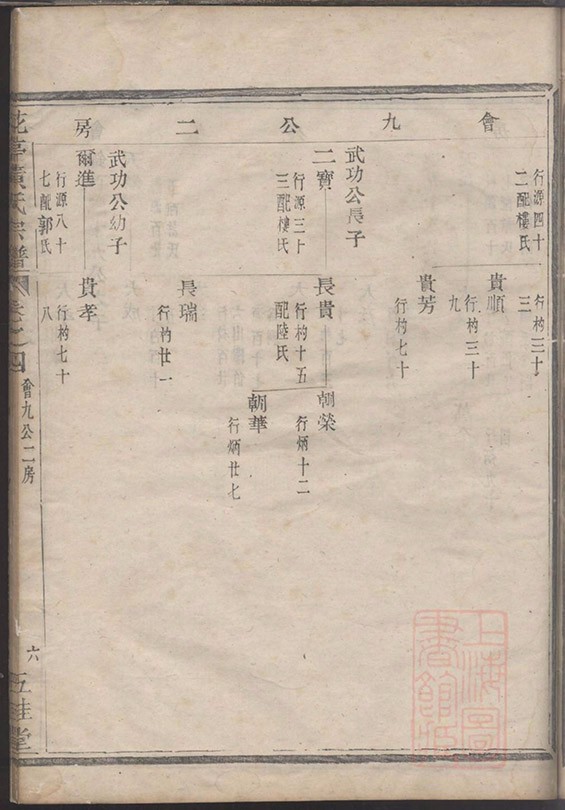 會九公二房
行源四十
二配樓氏
行杓三十
三
貴順
行杓三十
九
貴芳
行杓七十
武功公長子
二寶
行源三十
三配樓氏
長貴
行杓十五
配陸氏
朝榮
行炳十二
朝華
行炳廿七
長瑞
行杓廿一
武功公幼子
爾進
行源八十
七配郭氏
貴孝
行杓七十
八
黃氏宗譜
卷之四
會九公二房
六
五桂堂
上海圖書館